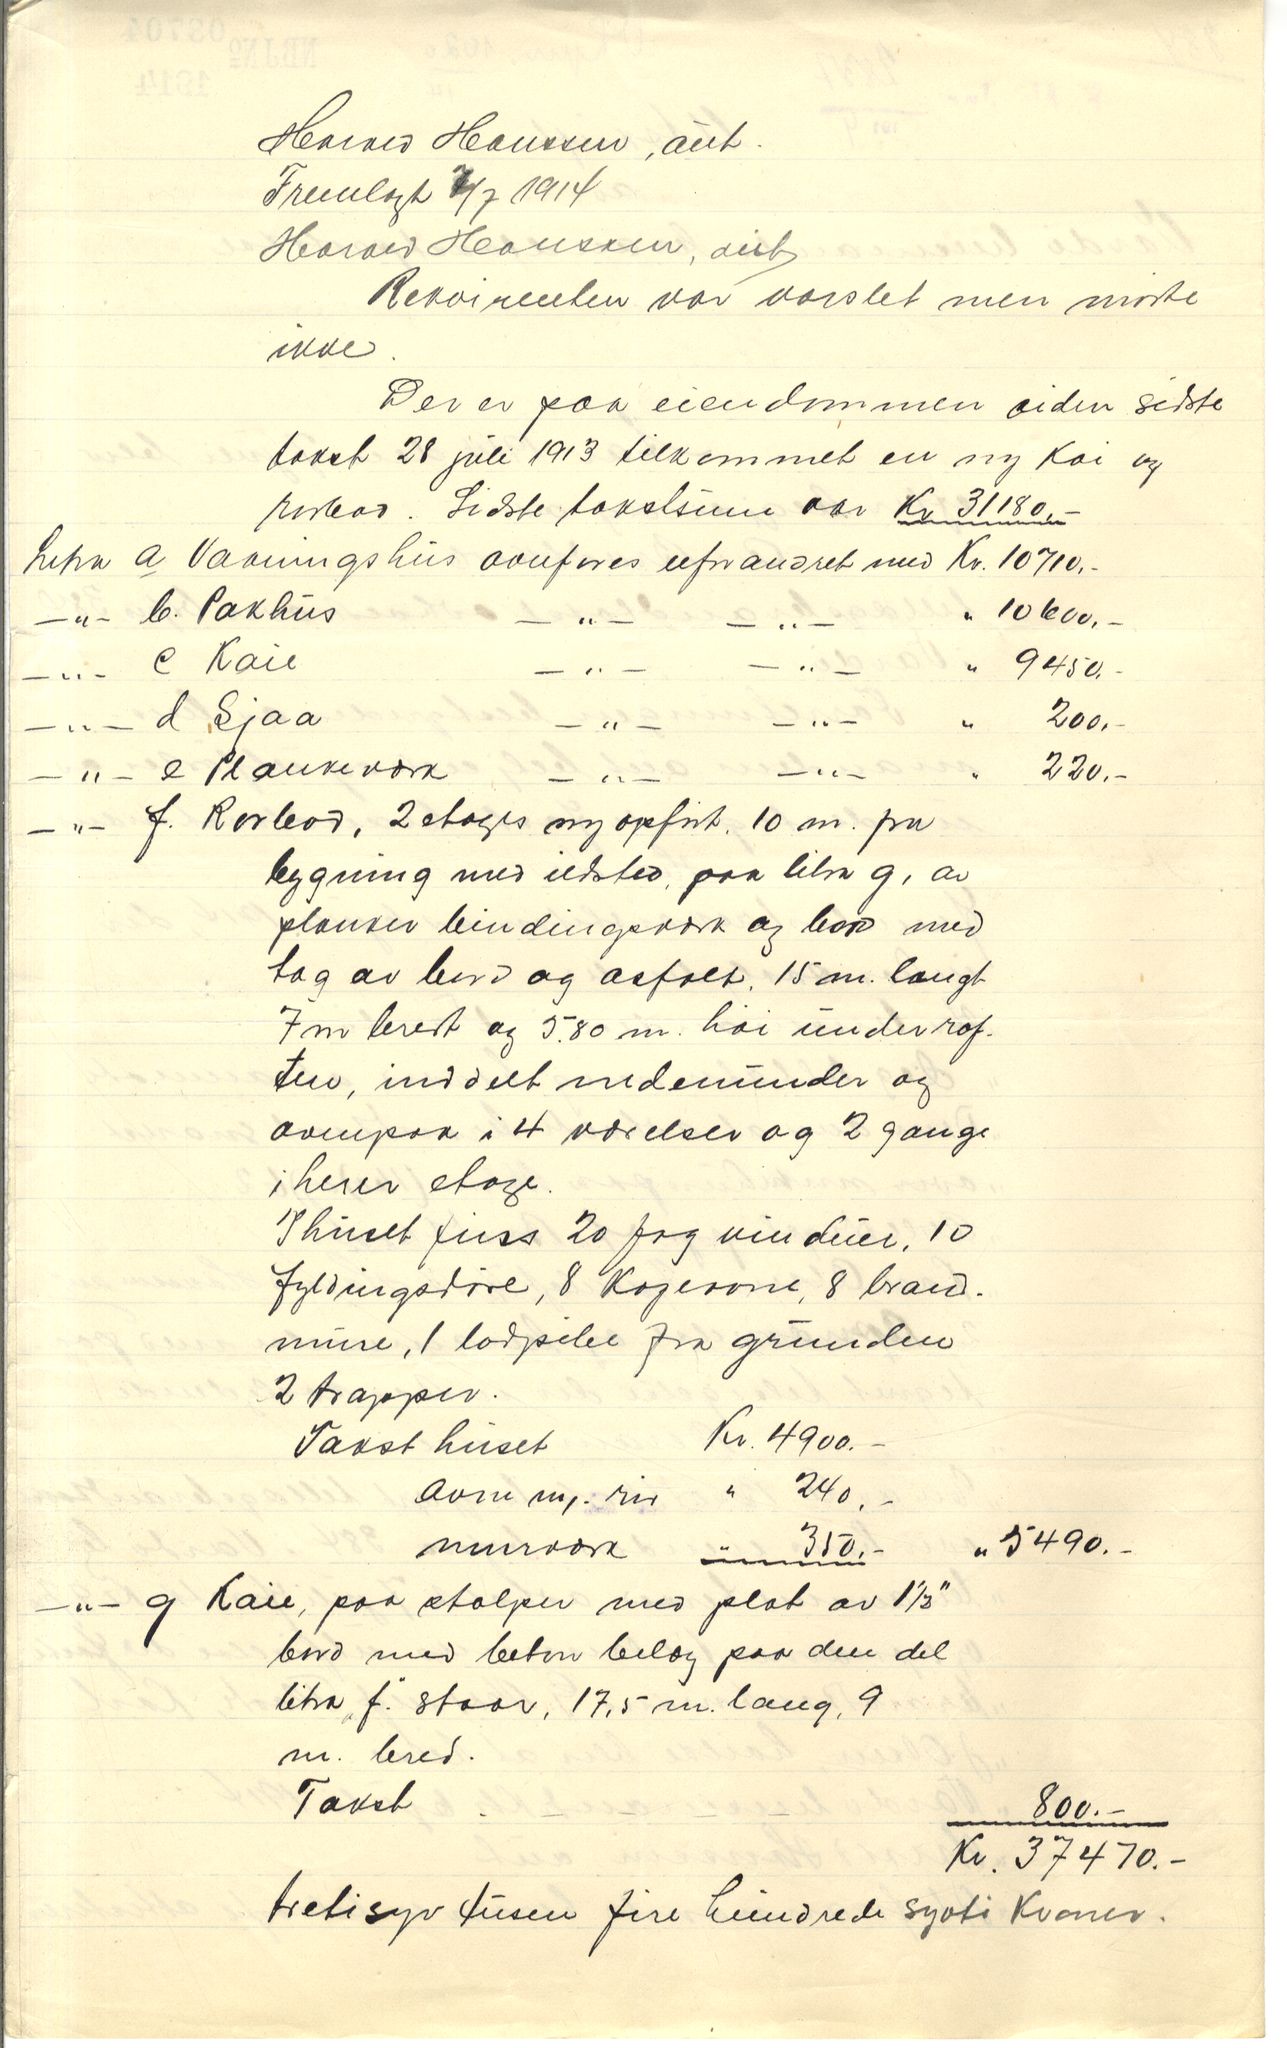 Harald Hanssen, aut.
Fremlagt 7/7 1914
Harald Hanssen, aut
Rekvirenten var varslet men møtte
ikke.
Der er paa eiendommen siden sidste
takst 28 juli 1913 tilkommet en ny kai og
rorbod. Sidste takstsum var Kr 31180,-
Litra a Vaaningshus ovnføres uforandret med Kr. 10710.-
—"— b. Pakhus —"— —"— " 10600,-
—"— c Kaie —"— —"— " 9450.-
—"— d Sjaa —"— —"— " 200,-
—"— e Plankeværk —"— —"— " 220.-
—"— f. Rorbod, 2 etages ny opført. 10 m. fra
bygning med ildsted, paa litra g, av
planker bindingsværk og bord med
tag av bord og asfalt. 15 m. langt
7 m bredt og 5.80 m. høi under raf-
ten, inddelt nedenunder og
ovenpaa i 4 værelser og 2 gange
i hver etage.
I huset fins 20 fag vinduer, 10
fyldingsdøre, 8 kogeovne, 8 brand-
mure, 1 lodpibe fra grunden
2 trapper.
Takst huset Kr. 4900.-
ovne m/. rør " 240.-
murværk " 350.- " 5490.-
—"— g Kaie, paa stolper med plat av 1½"
bord med beton belæg paa den del
litra „f." staar, 17,5 m. lang, 9
m. bred.
Takst 800.-
Kr. 37470.-
tretisyv tusen fire hundrede sytti Kroner.